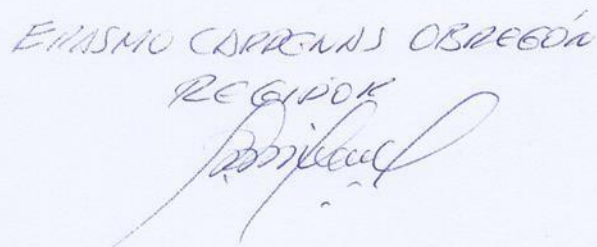 ERASMO CARDENAS OBREGÓN
REGIDOR